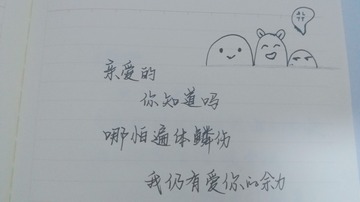 亲爱的
你知道吗
哪怕遍体鳞伤
我仍有爱你的余力